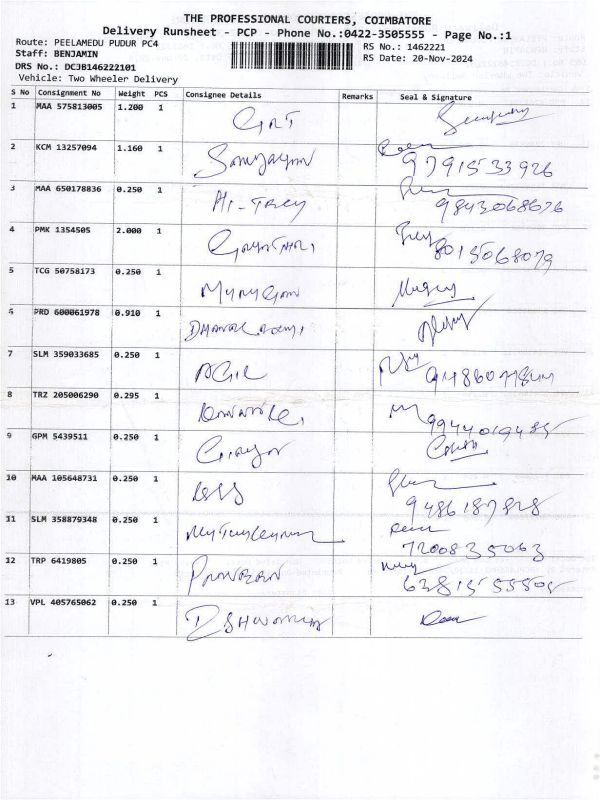 THE PROFESSIONAL COURIERS, COIMBATORE
Delivery Runsheet - PCP - Phone No.:0422-3505555 - Page No.:1
Route: PEELAMEDU PUDUR PC4
Staff: BENJAMIN
DRS No.: DCJB146222101
Vehicle: Two Wheeler Delivery
RS No.: 1462221
RS Date: 20-Nov-2024
S No Consignment No Weight PCS Consignee Details Remarks Seal & Signature
1 MAA 575813005 1.200 1 GRT
2 KCM 13257094 1.160 1 9791533926
3 MAA 650178836 0.250 1 HI-TREY 9843068676
4 PMK 1354505 2.000 1 GAYATHRI 8015068079
5 TCG 50758173 0.250 1 MURUGAN
6 PRD 600061978 0.910 1
7 SLM 359033685 0.250 1 AGIL
8 TRZ 205006290 0.295 1 9944019485
9 GPM 5439511 0.250 1
10 MAA 105648731 0.250 1 9486187828
11 SLM 358879348 0.250 1 7200835063
12 TRP 6419805 0.250 1 PRAVEEN
13 VPL 405765062 0.250 1